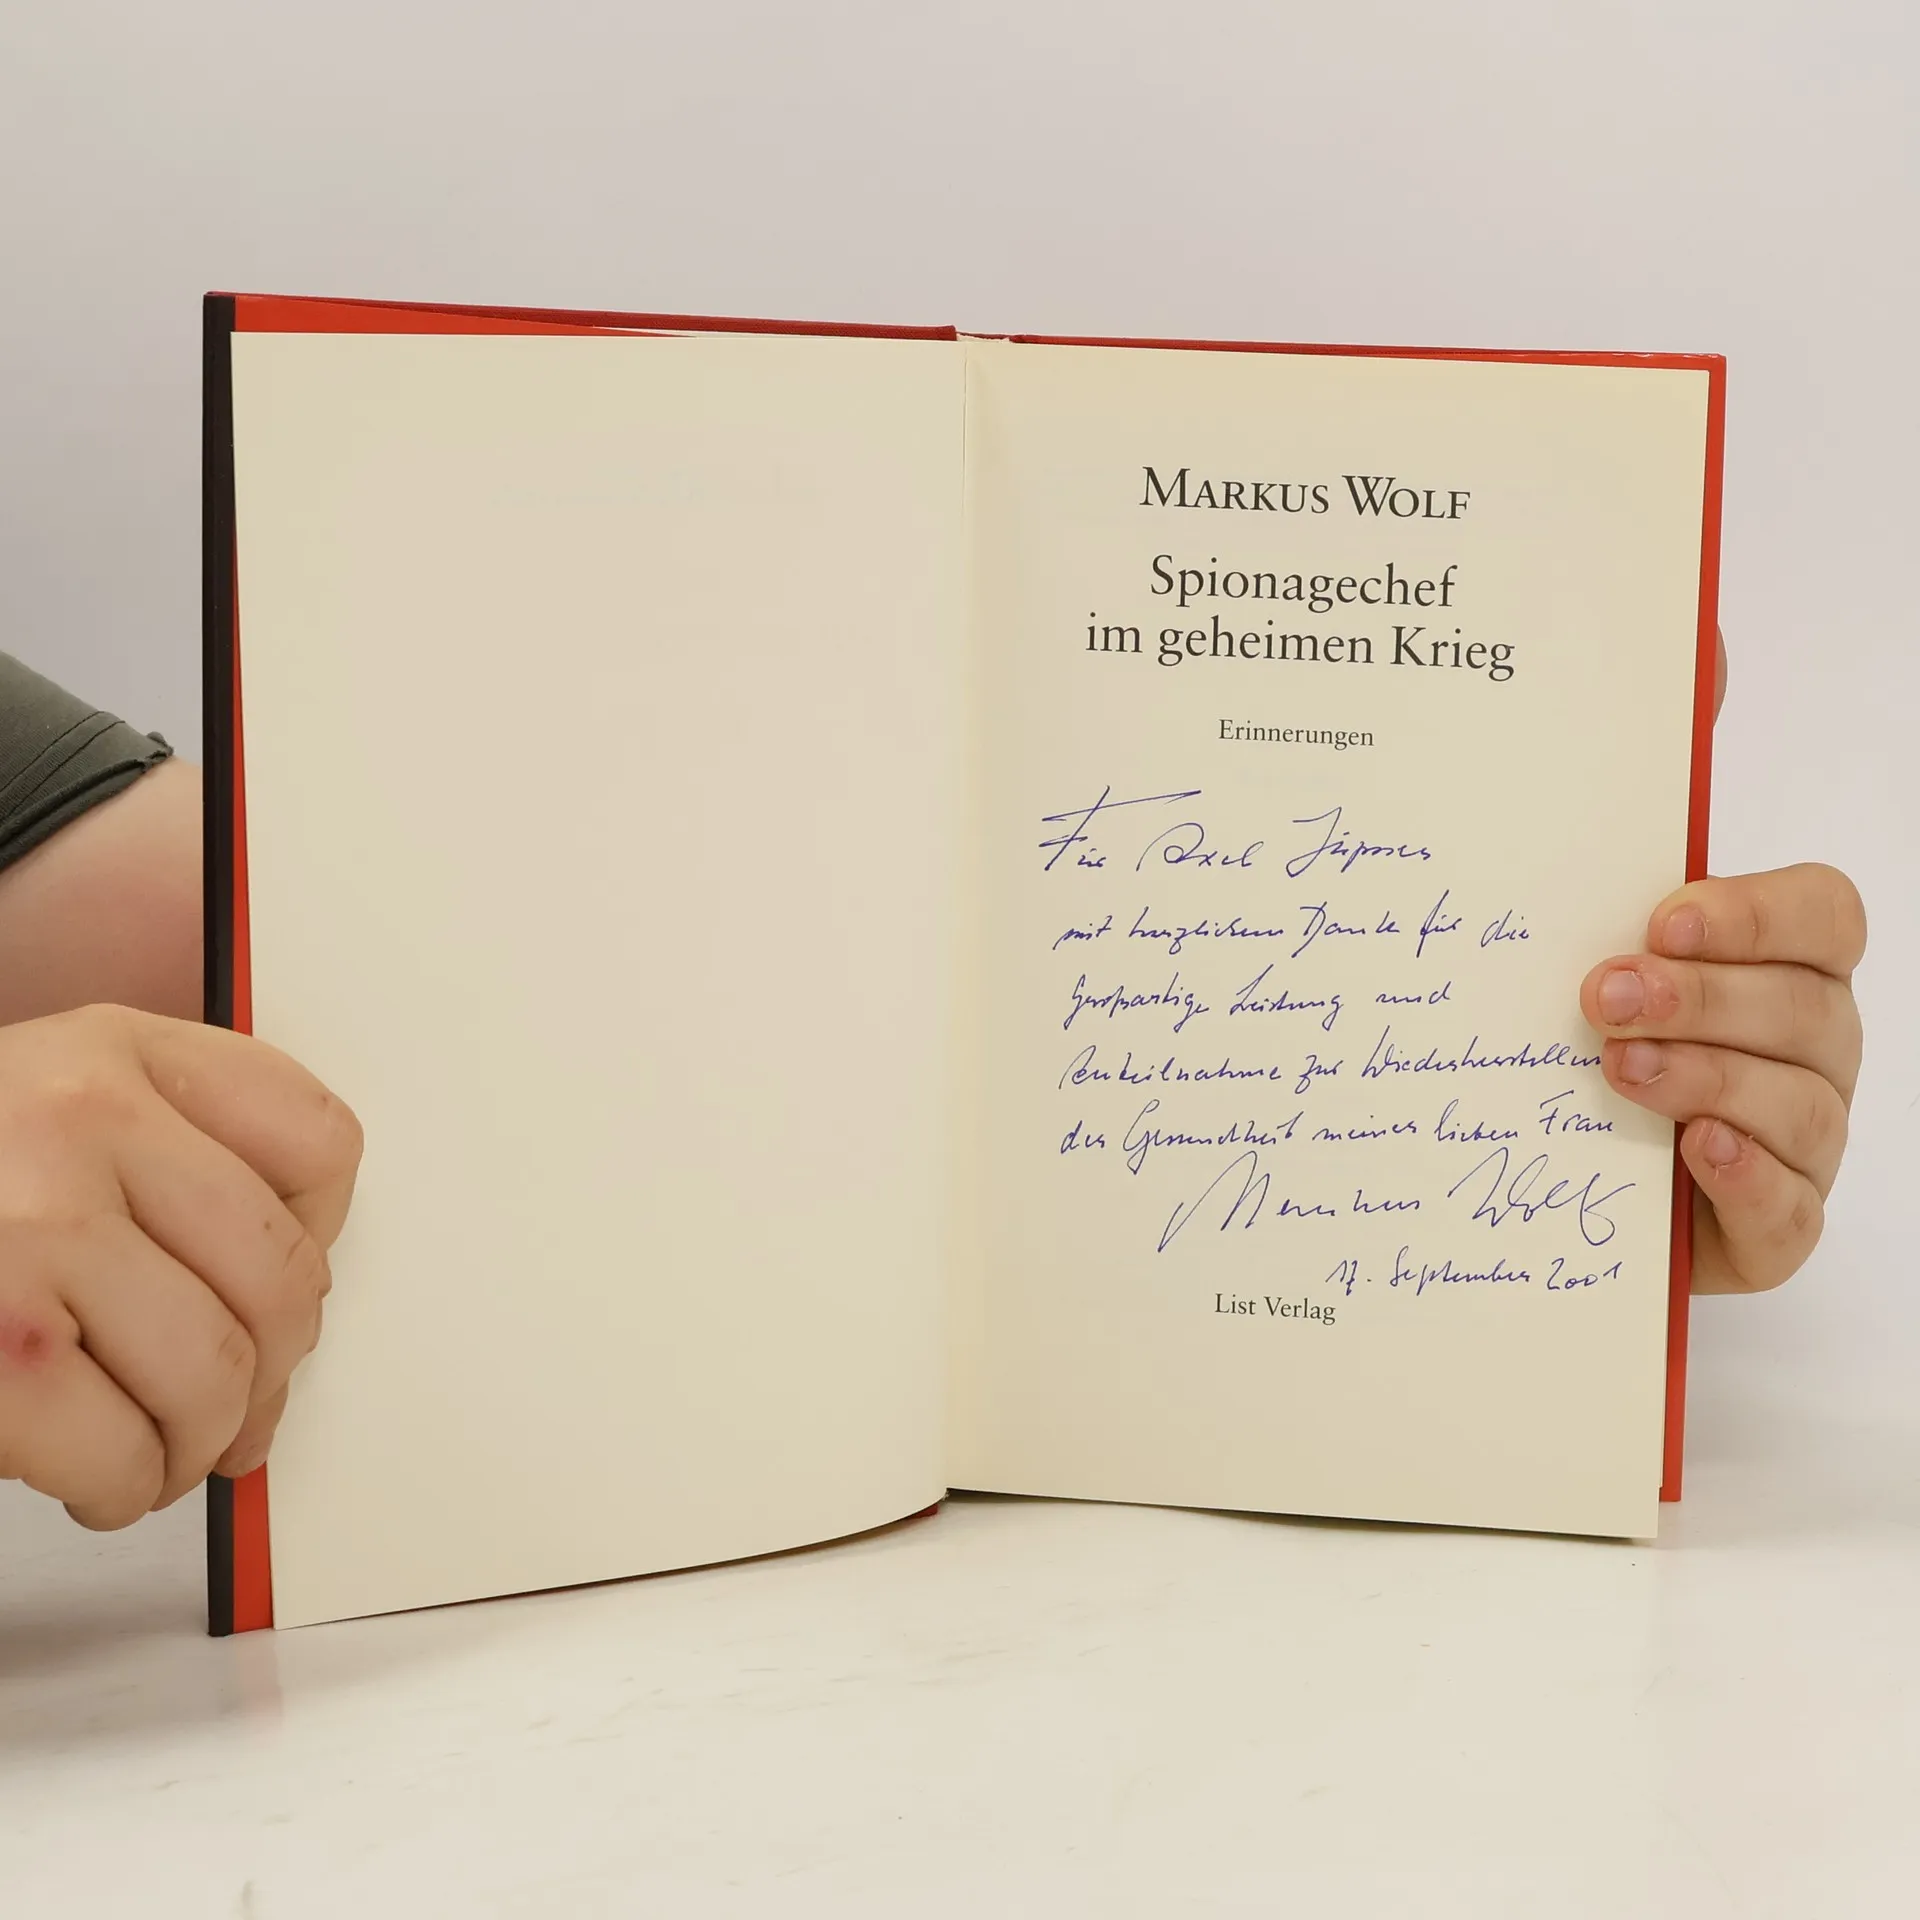 MARKUS WOLF
Spionagechef
im geheimen Krieg
Erinnerungen
Für Axel
mit herzlichem Dank für die
großartige Leistung und
Anteilnahme zur Wiederherstellun
der Gesundheit meiner lieben Frau
Markus Wolf
17. September 2001
List Verlag